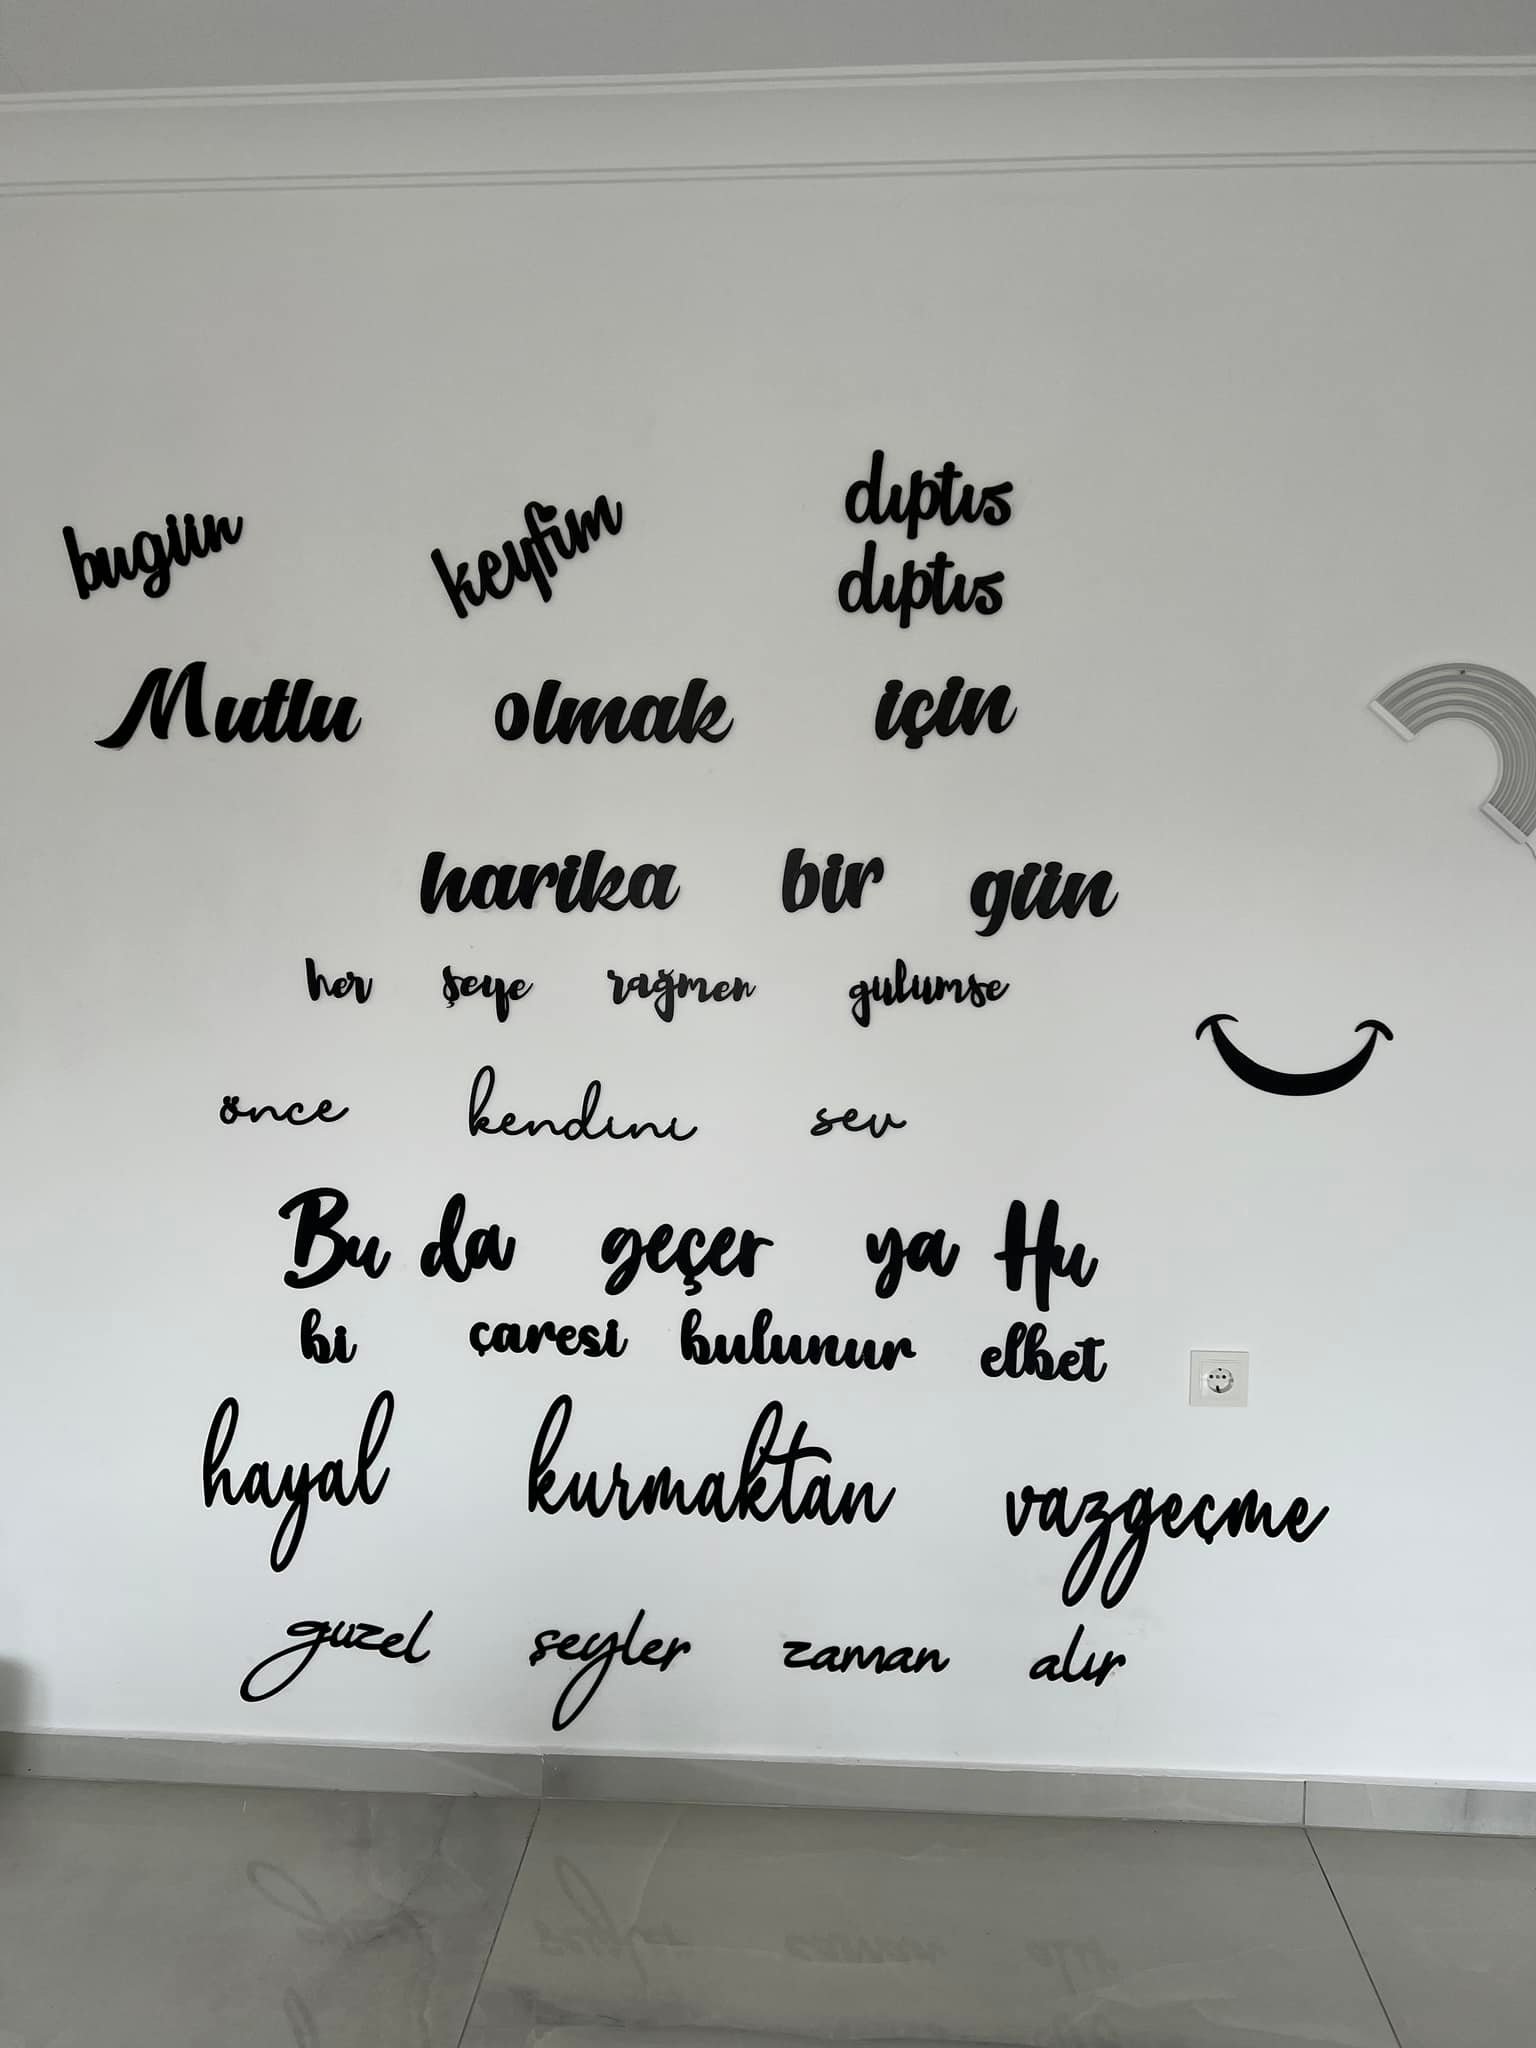 bugün keyfim dıptıs dıptıs
Mutlu olmak için
harika bir gün
her şeye rağmen gulumse
önce kendını sev
Bu da geçer ya Hu
bi çaresi bulunur elbet
hayal kurmaktan vazgeçme
guzel şeyler zaman alır